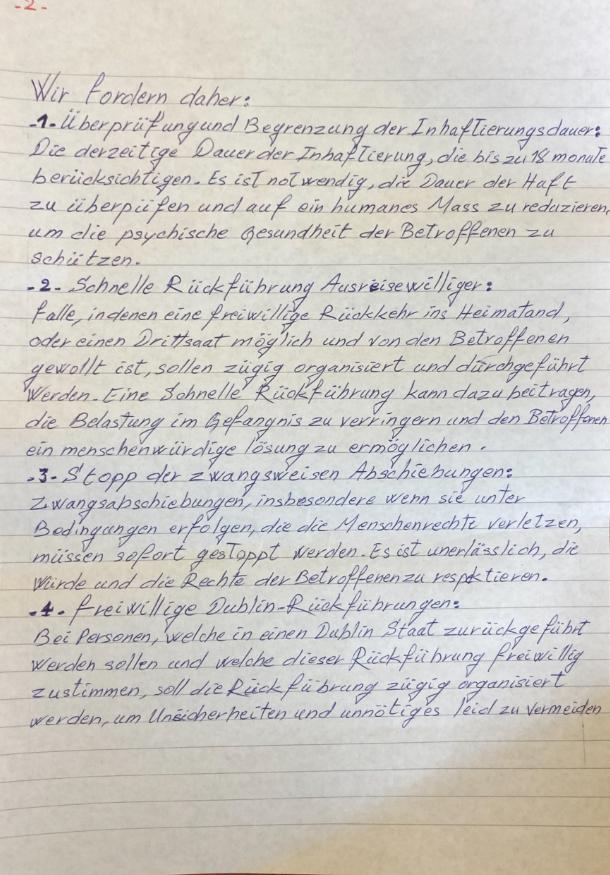 -2-
Wir fordern daher:
-1- Überprüfung und Begrenzung der Inhaftierungsdauer:
Die derzeitige Dauer der Inhaftierung, die bis zu 18 monate
berücksichtigen. Es ist notwendig, die Dauer der Haft
zu überpüfen und auf ein humanes Mass zu reduzieren,
um die psychische Gesundheit der Betroffenen zu
schützen.
-2- Schnelle Rückführung Ausreisewilliger:
Falle, indenen eine freiwillige Rückkehr ins Heimatand,
oder einen Drittsaat möglich und von den Betroffenen
gewollt ist, sollen zügig organisiert und durchgeführt
Werden. Eine Schnelle Rückführung kann dazu beitragen,
die Belastung im Gefangnis zu verringern und den Betroffenen
ein menschenwürdige lösung zu ermöglichen.
-3- Stopp der zwangsweisen Abschiebungen:
Zwangsabschiebungen, insbesondere wenn sie unter
Bedingungen erfolgen, die die Menschenrechte verletzen,
müssen sofort gestoppt werden. Es ist unerlässlich, die
Würde und die Rechte der Betroffenen zu respektieren.
-4- freiwillige Dublin-Rückführungen:
Bei Personen, welche in einen Dublin Staat zurückgeführt
Werden sollen und welche dieser Rückführung freiwillig
zustimmen, soll die Rückführung zügig organisiert
werden, um Unsicherheiten und unnötiges leid zu vermeiden